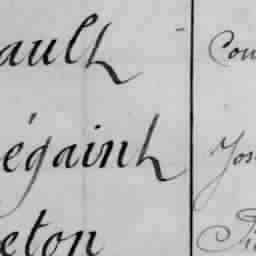 ault Cou
égaint Jos
eton